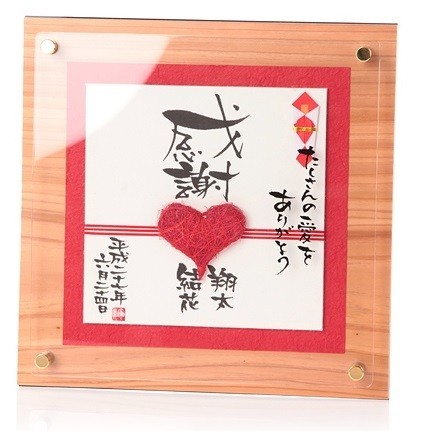 感謝
たくさんの愛を
ありがとう
翔太
結花
平成二十七年
六月二十四日